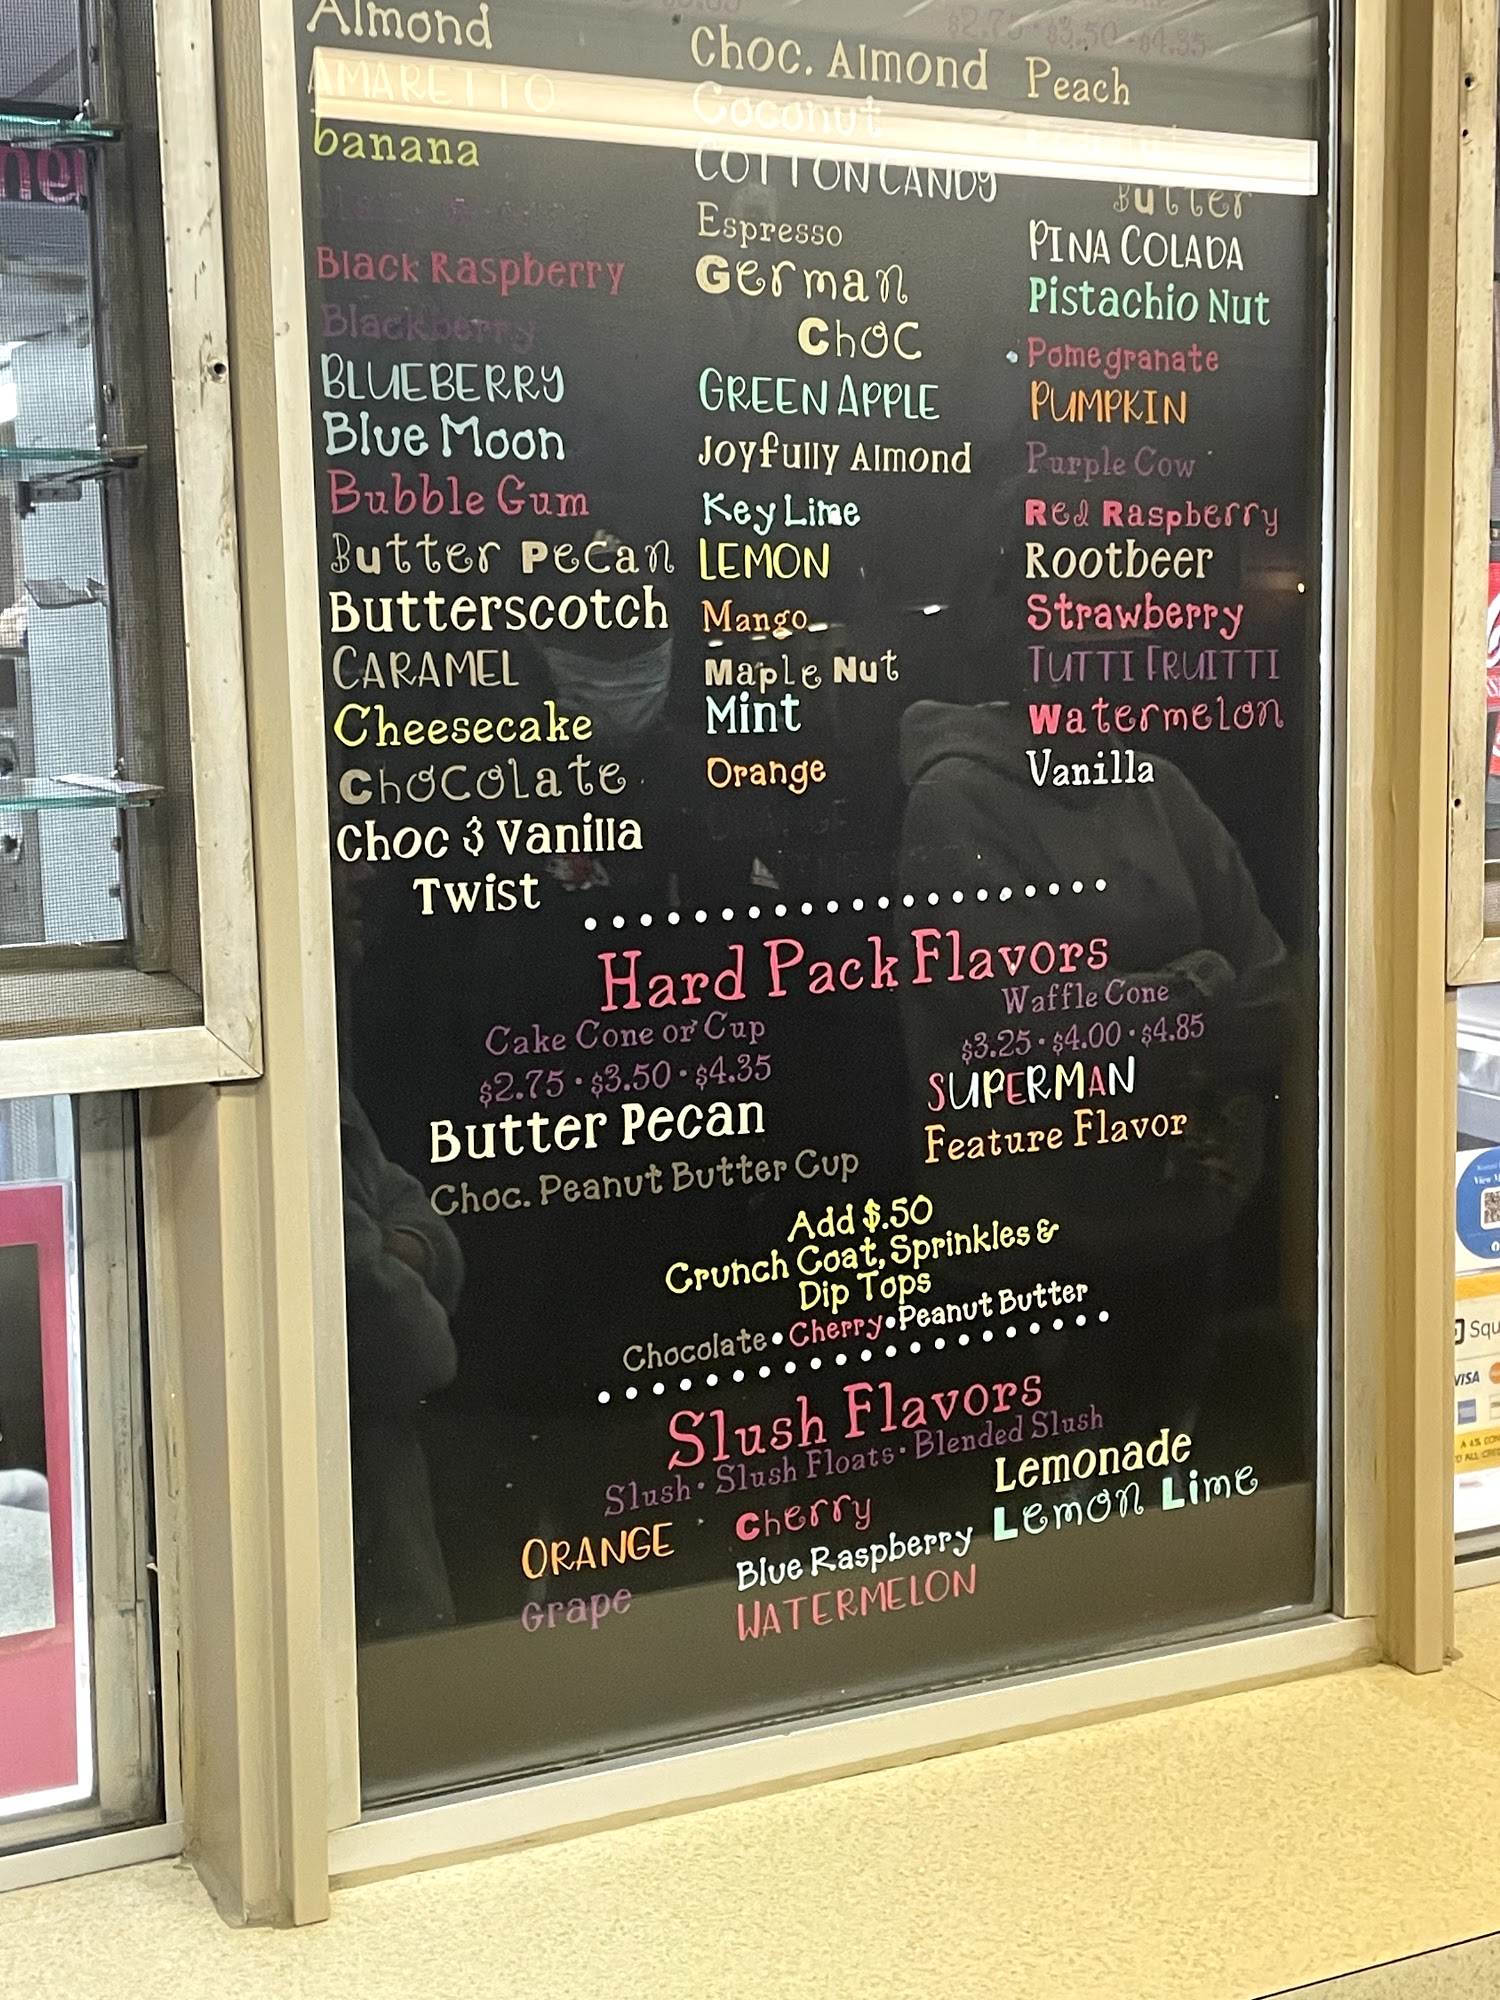 $2.75 · $3.50 · $4.35
Almond
AMARETTO
banana
Black Raspberry
Blackberry
BLUEBERRY
Blue Moon
Bubble Gum
Butter Pecan
Butterscotch
CARAMEL
Cheesecake
Chocolate
Choc & Vanilla
Twist
Choc. Almond
Coconut
COTTON CANDY
Espresso
German
Choc
GREEN APPLE
Joyfully Almond
Key Lime
LEMON
Mango
Maple Nut
Mint
Orange
Peach
Butter
PINA COLADA
Pistachio Nut
Pomegranate
PUMPKIN
Purple Cow
Red Raspberry
Rootbeer
Strawberry
TUTTI FRUITTI
Watermelon
Vanilla
Hard Pack Flavors
Cake Cone or Cup
$2.75 • $3.50 • $4.35
Waffle Cone
$3.25 • $4.00 • $4.85
Butter Pecan
Choc. Peanut Butter Cup
SUPERMAN
Feature Flavor
Add $.50
Crunch Coat, Sprinkles &
Dip Tops
Chocolate • Cherry • Peanut Butter
Slush Flavors
Slush • Slush Floats • Blended Slush
ORANGE
Grape
Cherry
Blue Raspberry
WATERMELON
Lemonade
Lemon Lime
VISA